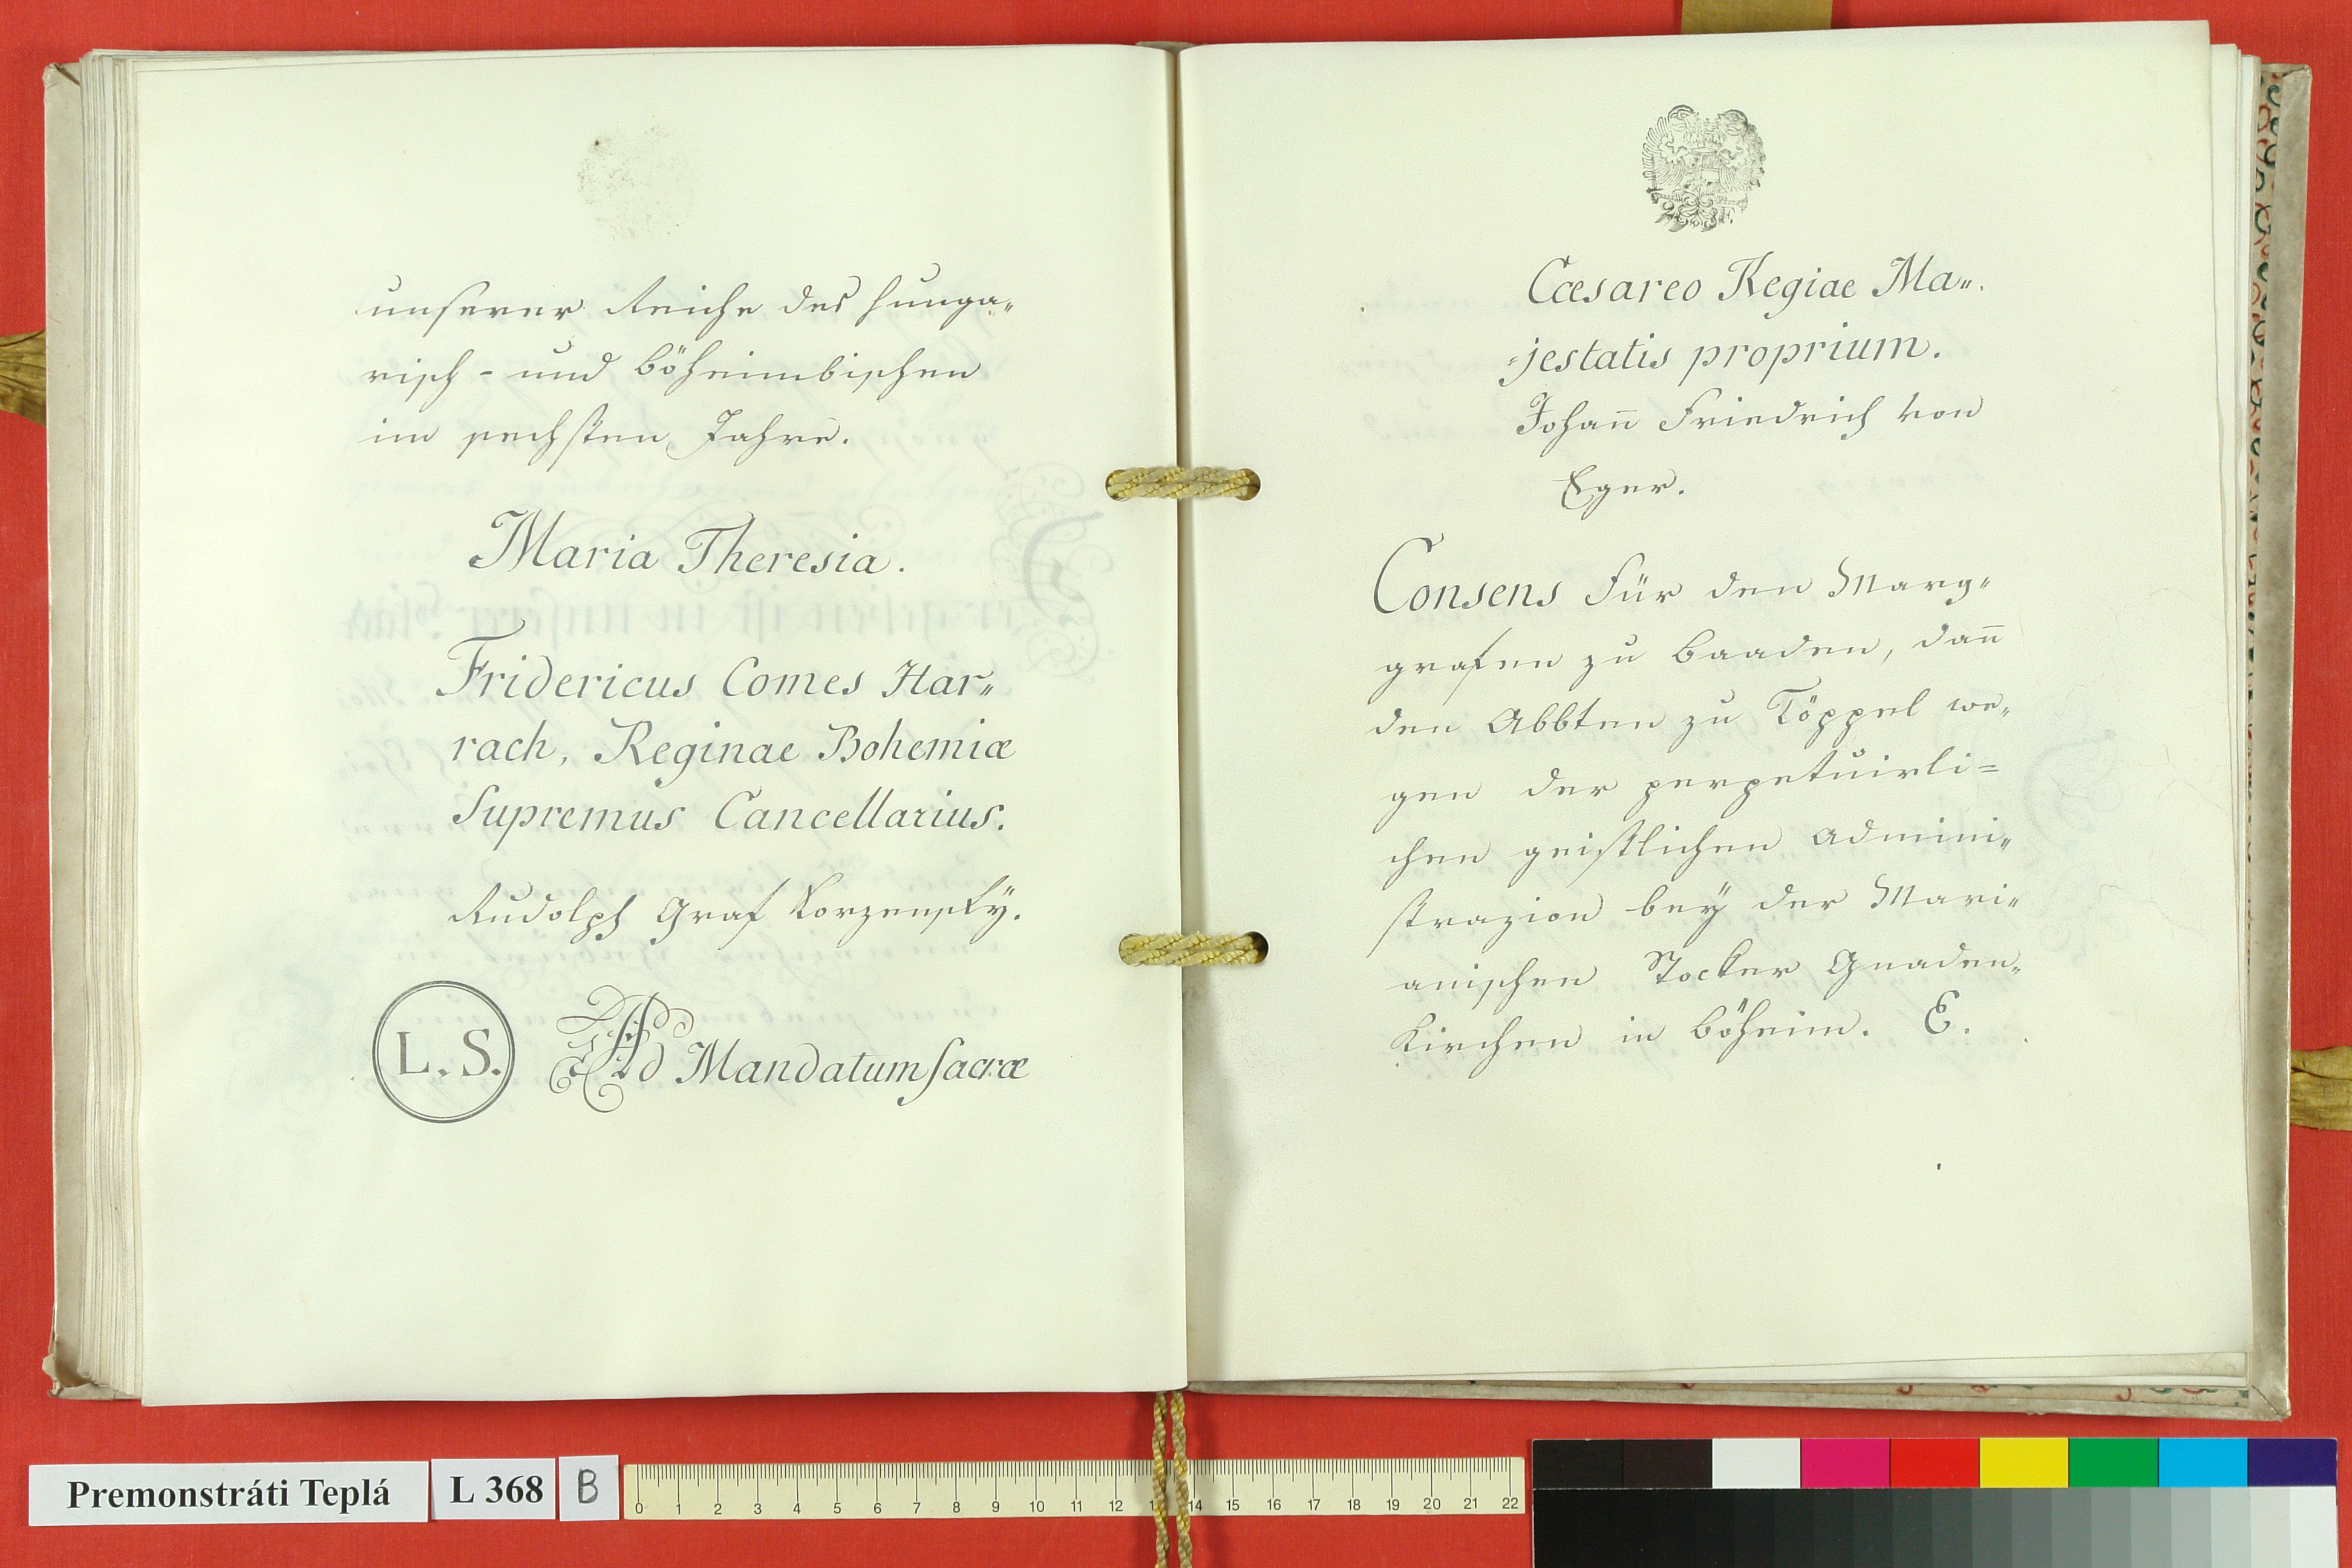 unserer Reiche des hunga„
risch- und böheimbischen
im sechsten Jahre.
Maria Theresia.
Fridericus Comes Har„
rach, Reginae Bohemiæ
Supremus Cancellarius.
Rudolph Graf Korzensky.
L. S.
Ad Mandatum sacræ
Cæsareo Regiae Ma„
„jestatis proprium.
Johan̅ Friedrich von
Eger.
Consens für den Marg„
grafen zu Baaden, dan̅
den Abbten zu Töppel we„
gen der perpetuirli=
chen geistlichen Admini„
strazion bey der Mari„
anischen Stocker Gnaden„
Kirchen in Böheim. E.
Premonstráti Teplá
L 368
B
0 1 2 3 4 5 6 7 8 9 10 11 12 13 14 15 16 17 18 19 20 21 22